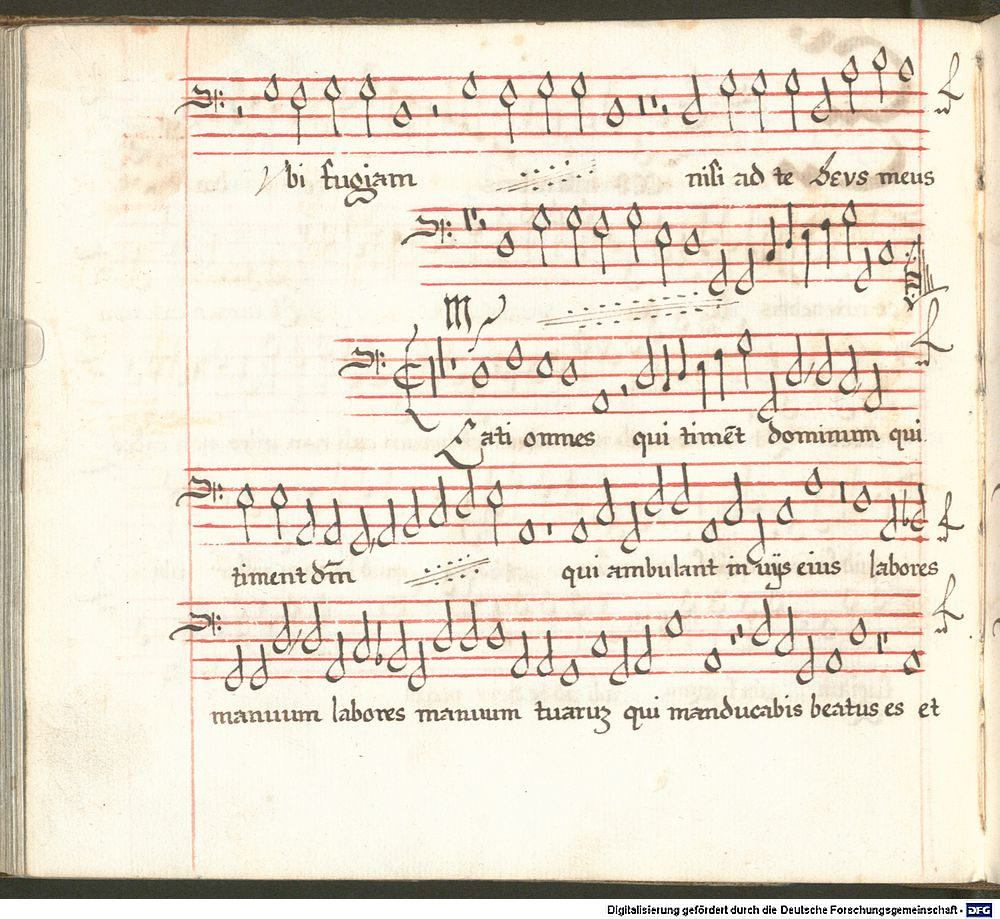 Vbi fugiam nisi ad te Deus meus
M
Eati omnes qui timēt dominum qui
timent dm̄ qui ambulant in vijs eius labores
manuum labores manuum tuaruꝫ qui manducabis beatus es et
Digitalisierung gefördert durch die Deutsche Forschungsgemeinschaft - DFG